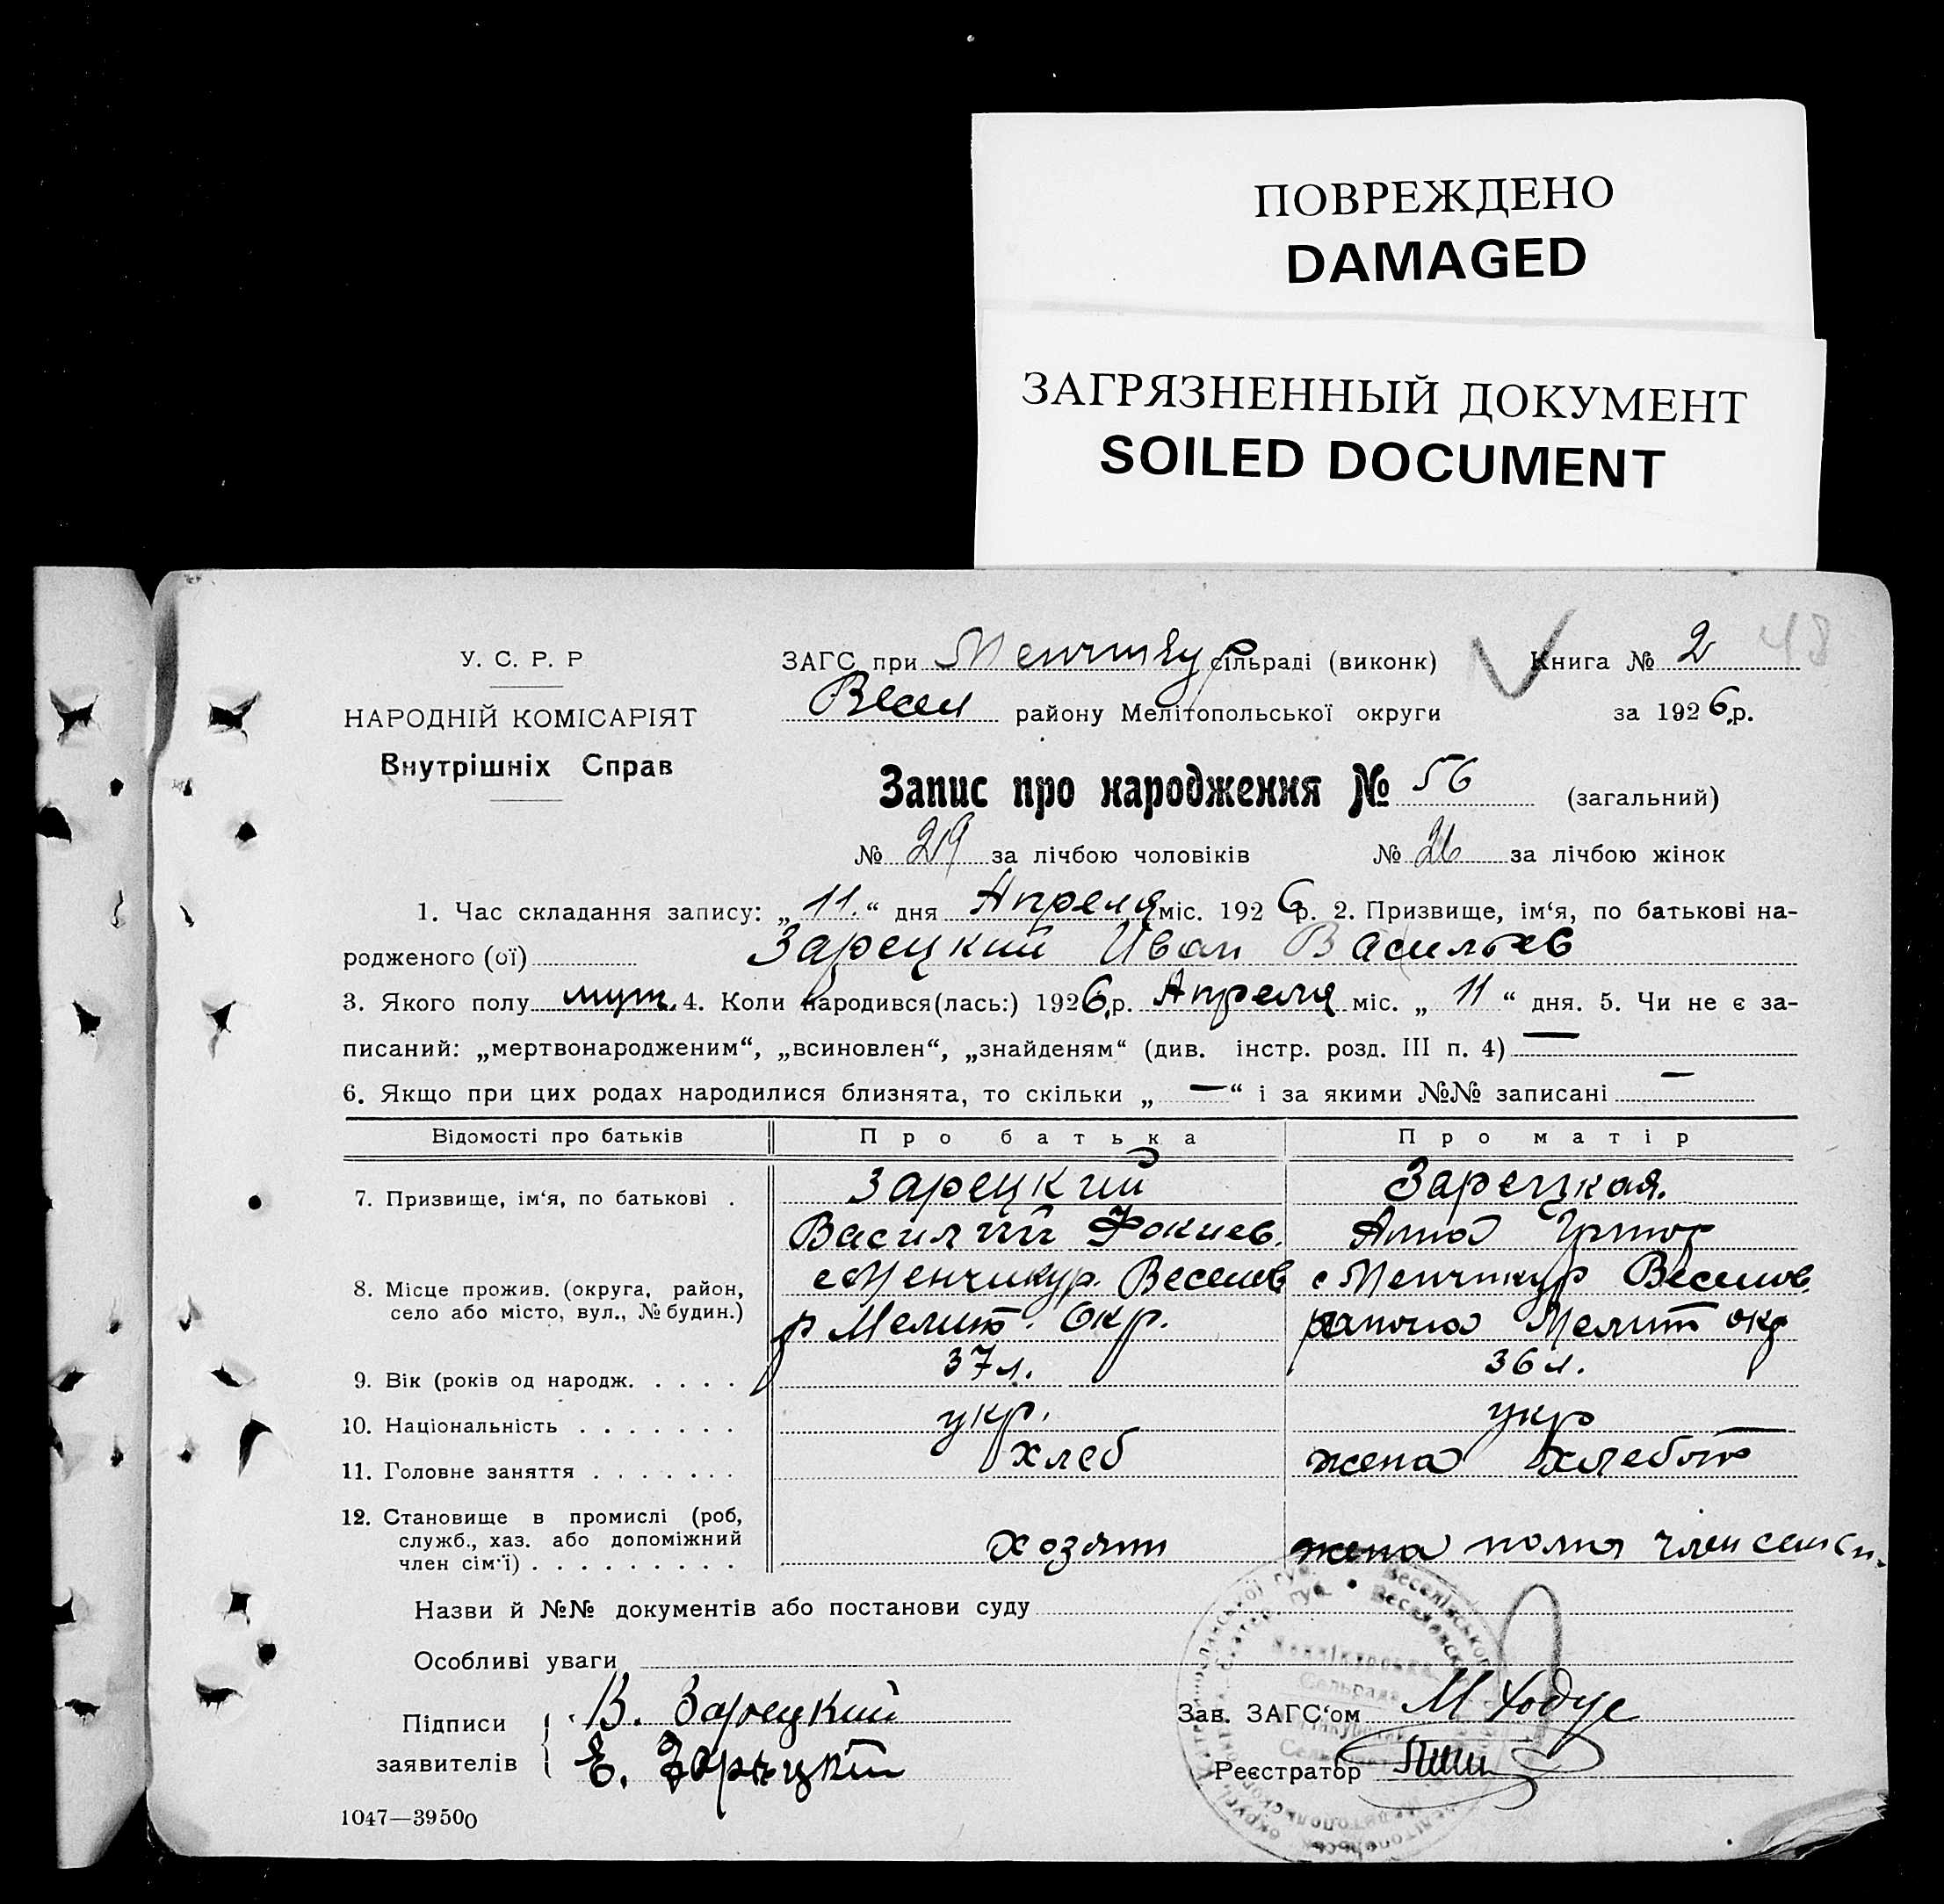 ПОВРЕЖДЕНО
DAMAGED
ЗАГРЯЗНЕННЫЙ ДОКУМЕНТ
SOILED DOCUMENT
У. С. Р. Р
НАРОДНІЙ КОМІСАРІЯТ
Внутрішніх Справ
ЗАГС при Менчикур сільраді (виконк) Книга № 2 48
Весел району Мелітопольської округи за 1926 р.
Запис про народження № 56 (загальний)
№ 29 за лічбою чоловіків № 26 за лічбою жінок
1. Час складання запису: „11.“ дня Апреля міс. 1926 р. 2. Призвище, ім‘я, по батькові на-
родженого (ої) Зарецкий Иван Васильев
3. Якого полу муж. 4. Коли народився(лась:) 1926 р. Апреля міс. „11“ дня. 5. Чи не є за-
писаний: „мертвонародженим“, „всиновлен“, „знайденям“ (див. інстр. розд. III п. 4) —
6. Якщо при цих родах народилися близнята, то скільки „—“ і за якими №№ записані —
Відомості про батьків Про батька Про матір
7. Призвище, ім‘я, по батькові . Зарецкий Зарецкая.
Василий Фокиев. Анна Григор
8. Місце прожив. (округа, район, с Менчикур. Веселов с Менчикур Веселов.
село або місто, вул., № будин.) р Мелит. Окр. района Мелит окр
9. Вік (років од народж. . . . . 37 л. 36 л.
10. Національність . . . . . . . укр. укр
11. Головне заняття . . . . . . . хлеб жена хлебоп
12. Становище в промислі (роб,
служб., хаз. або допоміжний хозяин жена член семьи.
член сім‘ї) . . . . . . . . .
Назви й №№ документів або постанови суду
Особливі уваги
Підписи В. Зарецкий Зав. ЗАГС‘ом М Ходус
заявителів Е. Зарецкий Реєстратор
1047—39500